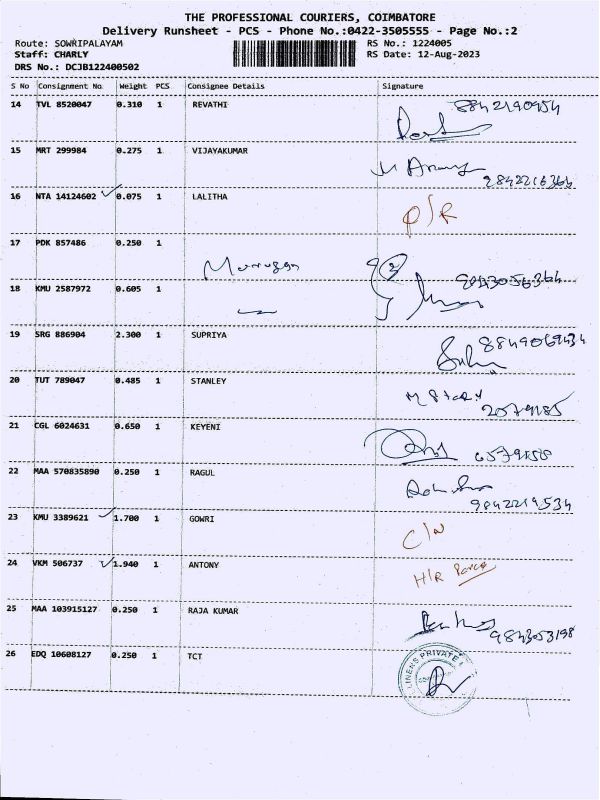 THE PROFESSIONAL COURIERS, COIMBATORE
Delivery Runsheet - PCS - Phone No.:0422-3505555 - Page No.:2
Route: SOWRIPALAYAM RS No.: 1224005
Staff: CHARLY RS Date: 12-Aug-2023
DRS No.: DCJB122400502
S No Consignment No Weight PCS Consignee Details Signature
14 TVL 8520047 0.310 1 REVATHI 8842190954
15 MRT 299984 0.275 1 VIJAYAKUMAR
9842216364
16 NTA 14124602 0.075 1 LALITHA
P/R
17 PDK 857486 0.250 1
Murugan
18 KMU 2587972 0.605 1
19 SRG 886904 2.300 1 SUPRIYA
20 TUT 789047 0.485 1 STANLEY
21 CGL 6024631 0.650 1 KEYENI
22 MAA 570835890 0.250 1 RAGUL
9842219534
23 KMU 3389621 1.700 1 GOWRI
C/N
24 VKM 506737 1.940 1 ANTONY
H/R
25 MAA 103915127 0.250 1 RAJA KUMAR
9843053198
26 EDQ 10608127 0.250 1 TCT
LINENS PRIVATE